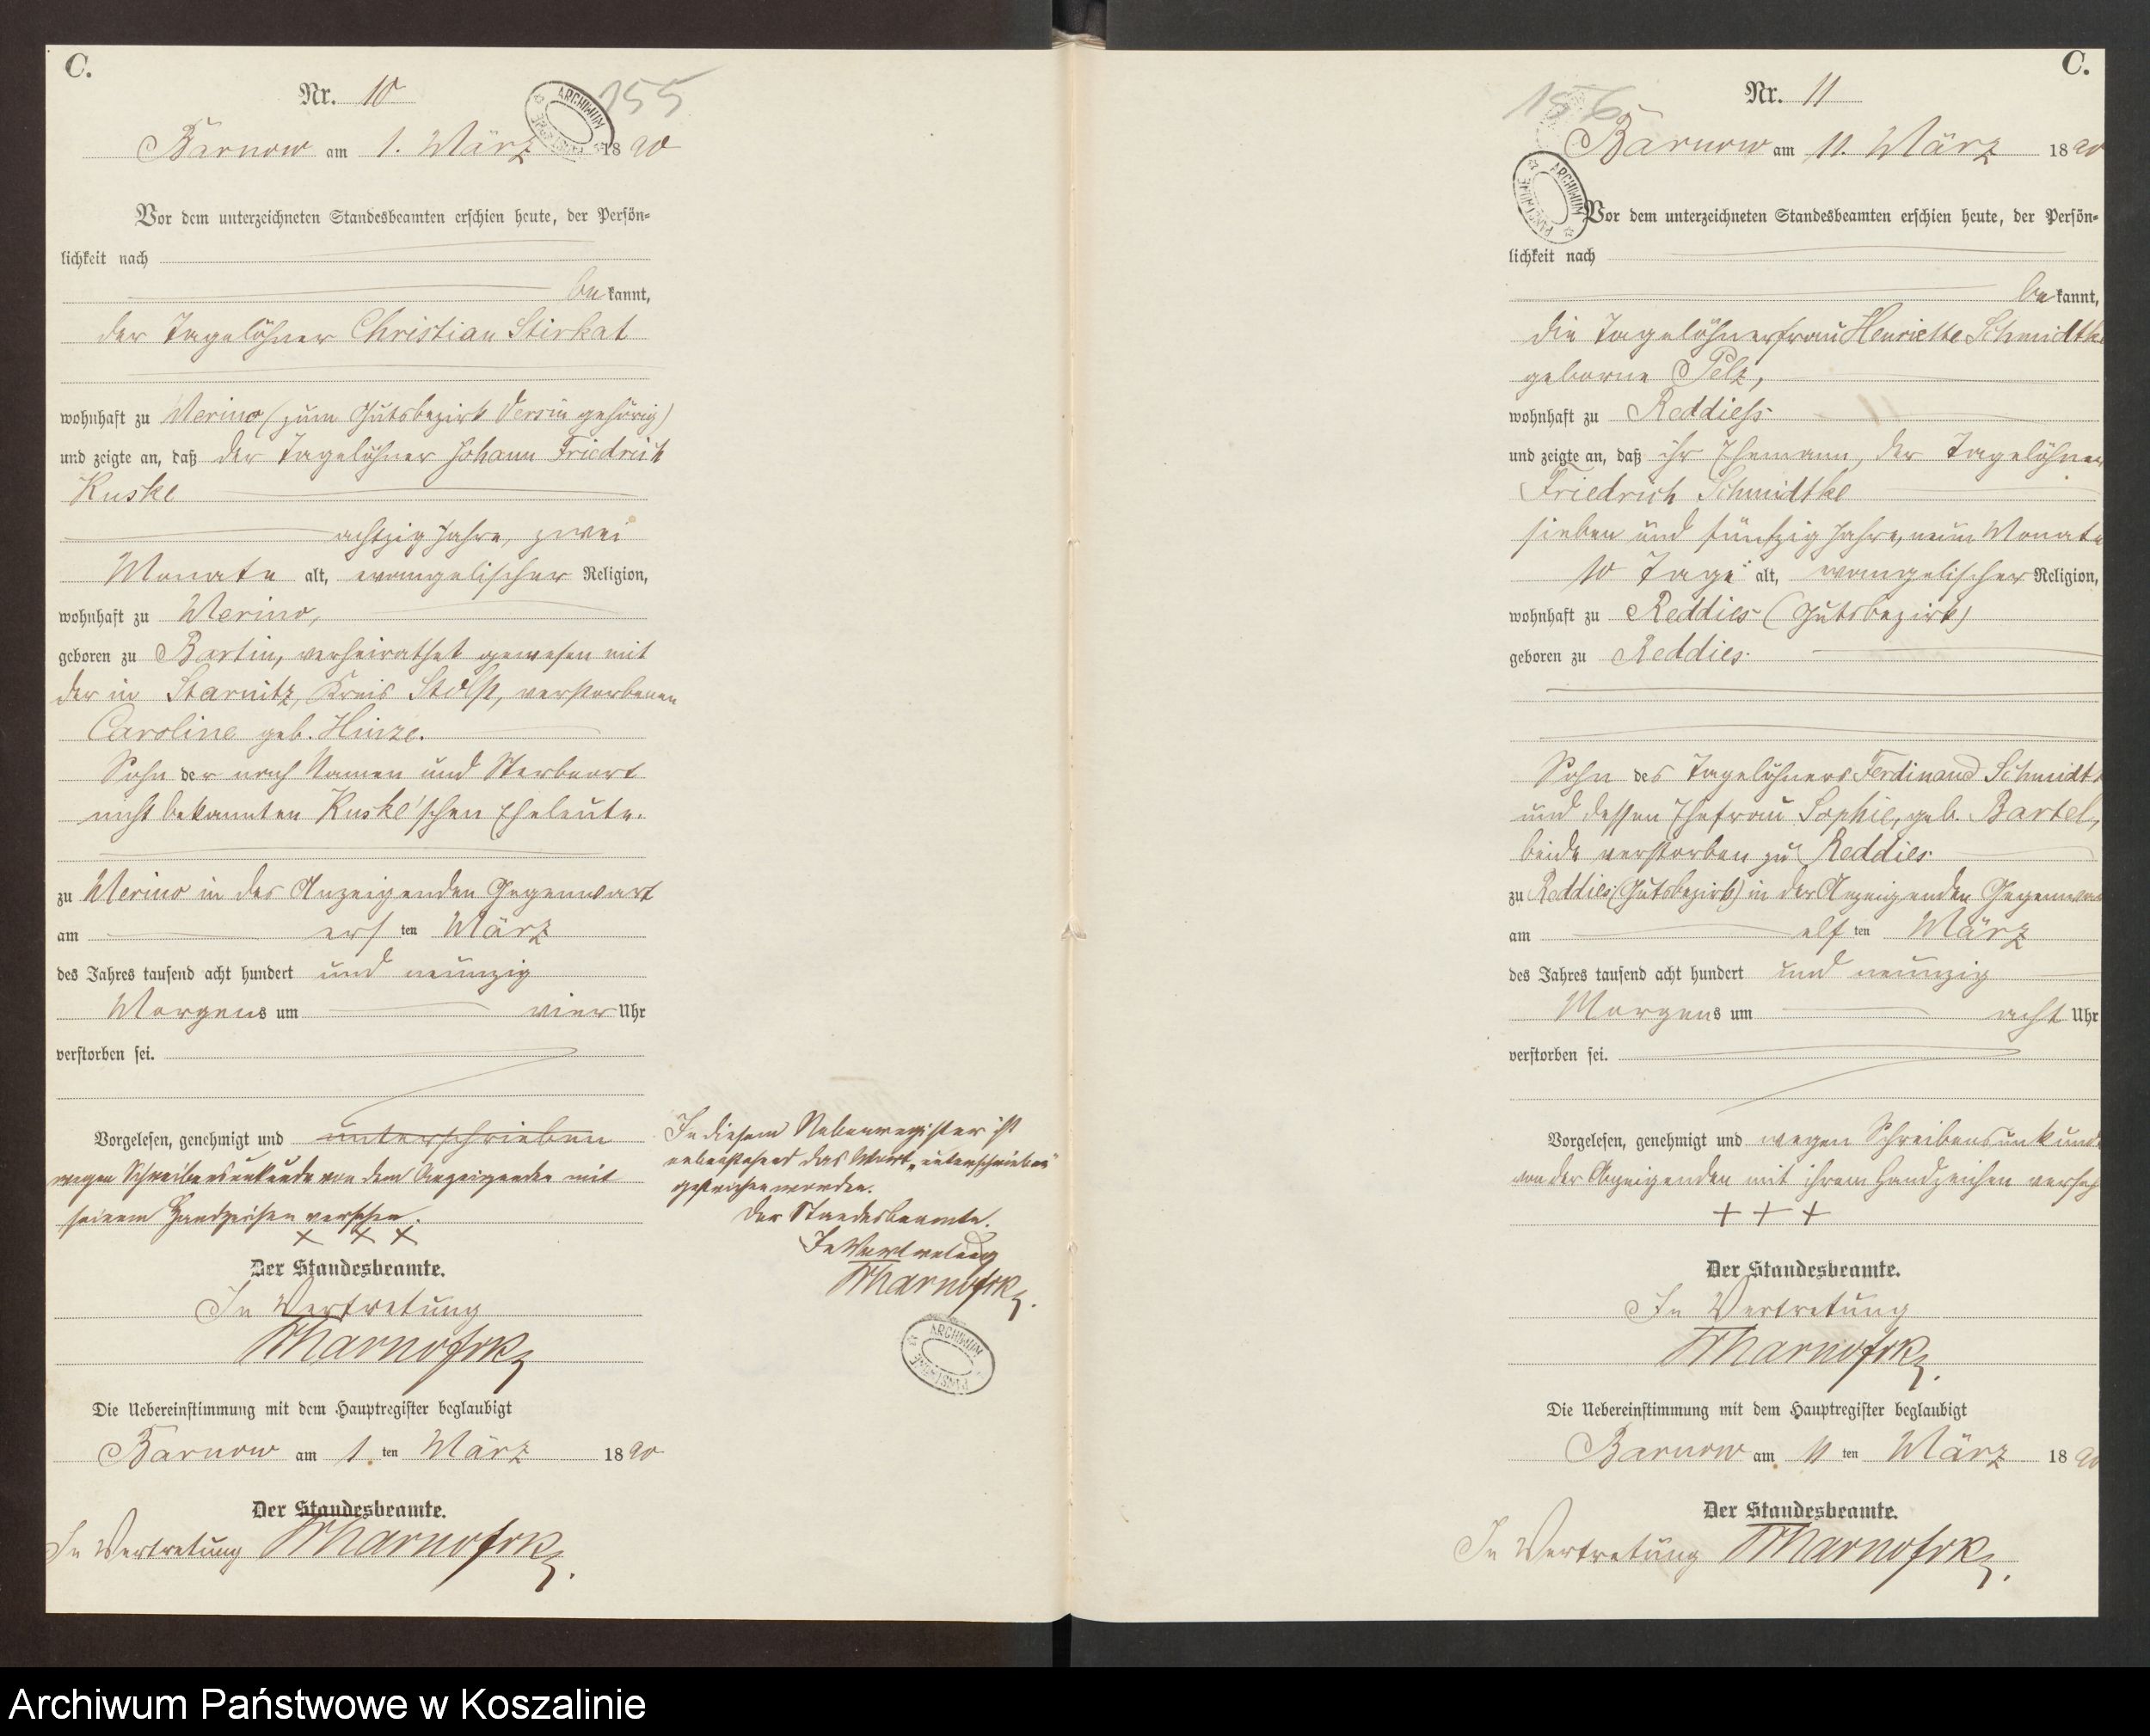 C.
Nr. 10
155
ARCHIWUM PAŃSTWOWE
Barnow am 1. März 1890
Vor dem unterzeichneten Standesbeamten erschien heute, der Persön-
lichkeit nach
bekannt,
der Tagelöhner Christian Stirkat
wohnhaft zu Werino (zum Gutsbezirk Versin gehörig)
und zeigte an, daß der Tagelöhner Johann Friedrich
Kuske
achtzig Jahre, zwei
Monate alt, evangelischer Religion,
wohnhaft zu Werino,
geboren zu Bartin, verheirathet gewesen mit
der in Starnitz, Kreis Stolp, verstorbenen
Caroline geb. Hinze.
Sohn der nach Namen und Sterbeort
nicht bekannten Kuske'schen Eheleute.
zu Werino in des Anzeigenden Gegenwart
am ersten März
des Jahres tausend acht hundert und neunzig
Morgens um vier Uhr
verstorben sei.
Vorgelesen, genehmigt und unterschrieben
wegen Schreibensunkunde von dem Anzeigenden mit
seinem Handzeichen versehen.
+ + +
Der Standesbeamte.
In Vertretung
Die Uebereinstimmung mit dem Hauptregister beglaubigt
Barnow am 1ten März 1890
Der Standesbeamte.
In Vertretung
In diesem Nebenregister ist
nebenstehend das Wort "unterschrieben"
gestrichen worden.
Der Standesbeamte.
In Vertretung
ARCHIWUM PAŃSTWOWE
C.
Nr. 11
156
ARCHIWUM PAŃSTWOWE
Barnow am 11. März 1890
Vor dem unterzeichneten Standesbeamten erschien heute, der Persön-
lichkeit nach
bekannt,
die Tagelöhnerfrau Henriette Schmidtke
geborne Pelz,
wohnhaft zu Reddies
und zeigte an, daß ihr Ehemann, der Tagelöhner
Friedrich Schmidtke
sieben und fünfzig Jahre, neun Monate
10 Tage alt, evangelischer Religion,
wohnhaft zu Reddies (Gutsbezirk)
geboren zu Reddies.
Sohn des Tagelöhners Ferdinand Schmidt
und dessen Ehefrau Sophie, geb. Bartel,
beide verstorben zu Reddies
zu Reddies (Gutsbezirk) in der Anzeigenden Gegenwart
am elften März
des Jahres tausend acht hundert und neunzig
Morgens um acht Uhr
verstorben sei.
Vorgelesen, genehmigt und wegen Schreibensunkunde
von der Anzeigenden mit ihrem Handzeichen verseh
+ + +
Der Standesbeamte.
In Vertretung
Die Uebereinstimmung mit dem Hauptregister beglaubigt
Barnow am 11ten März 1890
Der Standesbeamte.
In Vertretung
Archiwum Państwowe w Koszalinie